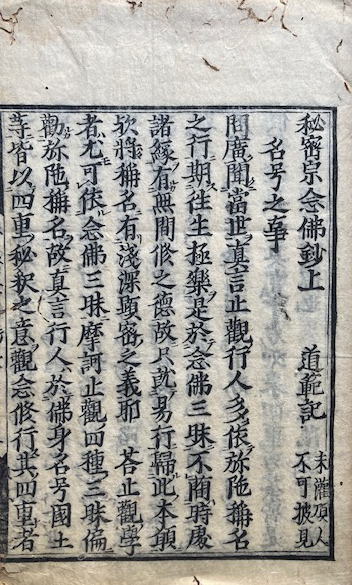 秘宻宗念佛鈔上　道範記　未灌頂人
不可披見
名号之事
問廣聞當世真言止觀行人多依弥陁稱名
之行期往生極樂是於念佛三昧不簡時處
諸縁有無間修之德故只就易行歸此本願
欤將稱名有淺深頭宻之義耶　荅止觀學
者尤可依念佛三昧摩訶止觀四種三昧偏
勸弥陁稱名故真言行人於佛身名号國土
等皆以四重秘釈之意觀念修行其四重者